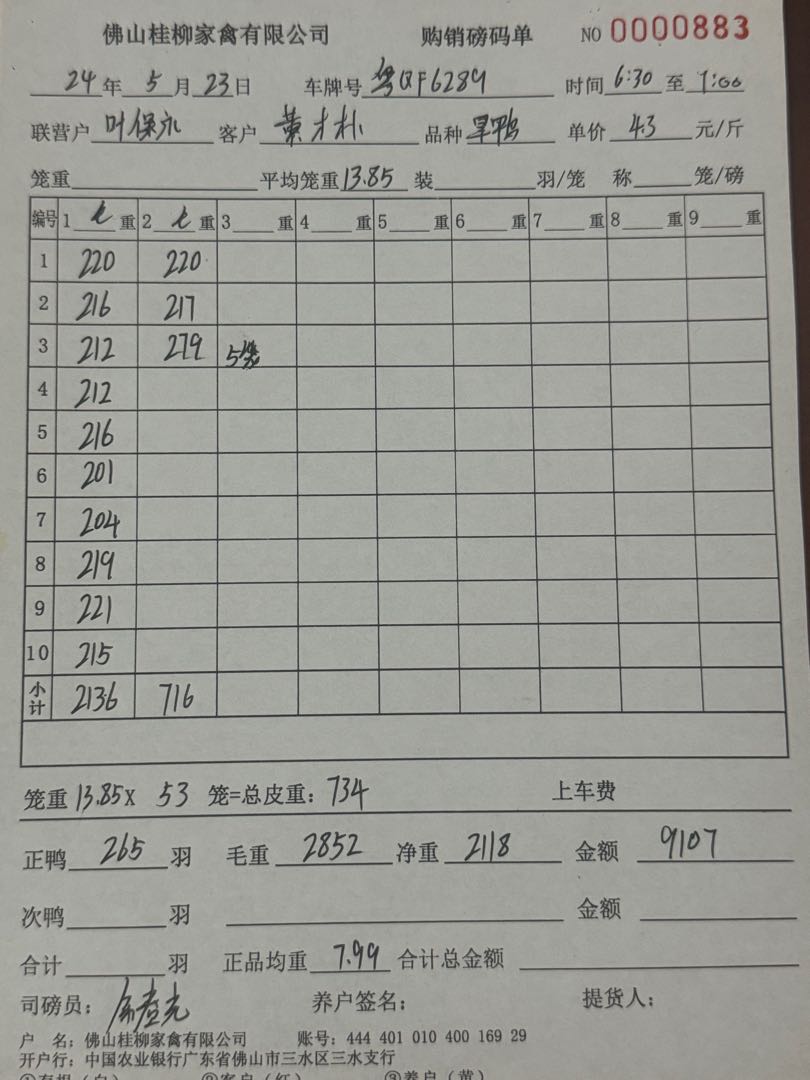 佛山桂柳家禽有限公司 购销磅码单 NO 0000883
24 年 5 月 23 日 车牌号 粤QF6289 时间 6:30 至 7:00
联营户 叶保永 客户 黄才朴 品种 旱鸭 单价 4.3 元/斤
笼重 平均笼重 13.85 装 羽/笼 称 笼/磅
编号 1 毛 重 2 毛 重 3 重 4 重 5 重 6 重 7 重 8 重 9 重
1 220 220
2 216 217
3 212 279 5笼
4 212
5 216
6 201
7 204
8 219
9 221
10 215
小计 2136 716
笼重 13.85X 53 笼=总皮重: 734 上车费
正鸭 265 羽 毛重 2852 净重 2118 金额 9107
次鸭 羽 金额
合计 羽 正品均重 7.99 合计总金额
司磅员: 养户签名: 提货人:
户 名: 佛山桂柳家禽有限公司 账号: 444 401 010 400 169 29
开户行: 中国农业银行广东省佛山市三水区三水支行
①存根(白) ②客户(红) ③养户(黄)